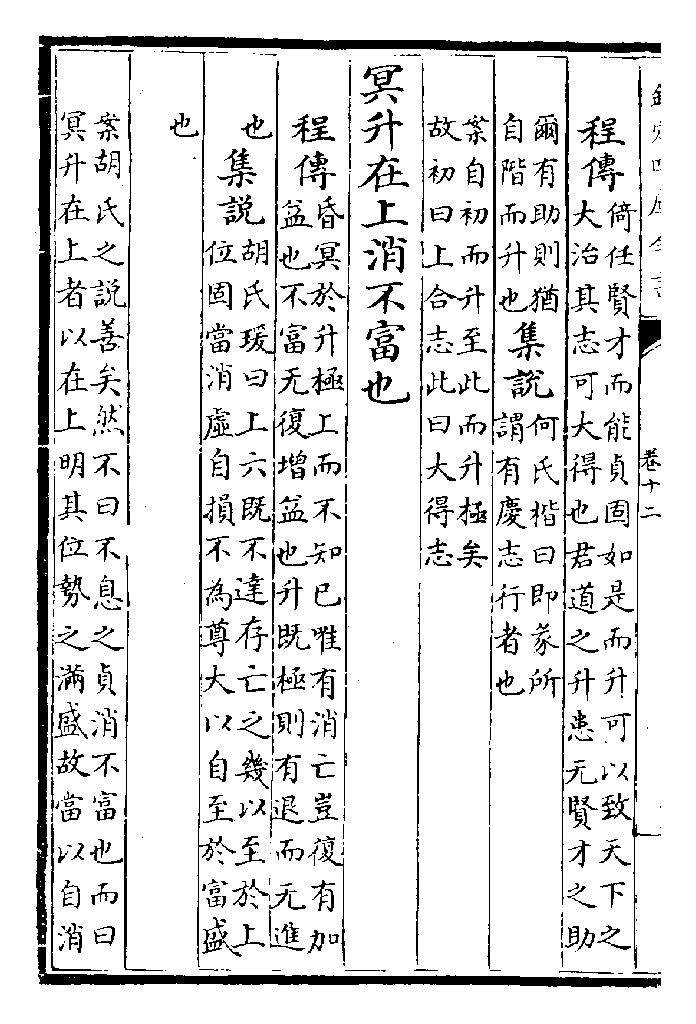 欽定四庫全書
卷十二
程傳
倚任賢才而能貞固如是而升可以致天下之
大治其志可大得也君道之升患无賢才之助
爾有助則猶
自階而升也
集說
何氏楷曰即彖所
謂有慶志行者也
案自初而升至此而升極矣
故初曰上合志此曰大得志
冥升在上消不富也
程傳
昏冥於升極上而不知已唯有消亡豈復有加
益也不富无復增益也升既極則有退而无進
也
集說
胡氏瑗曰上六既不達存亡之幾以至於上
位固當消虛自損不為尊大以自至於富盛
也
案胡氏之說善矣然不曰不息之貞消不富也而曰
冥升在上者以在上明其位勢之滿盛故當以自消